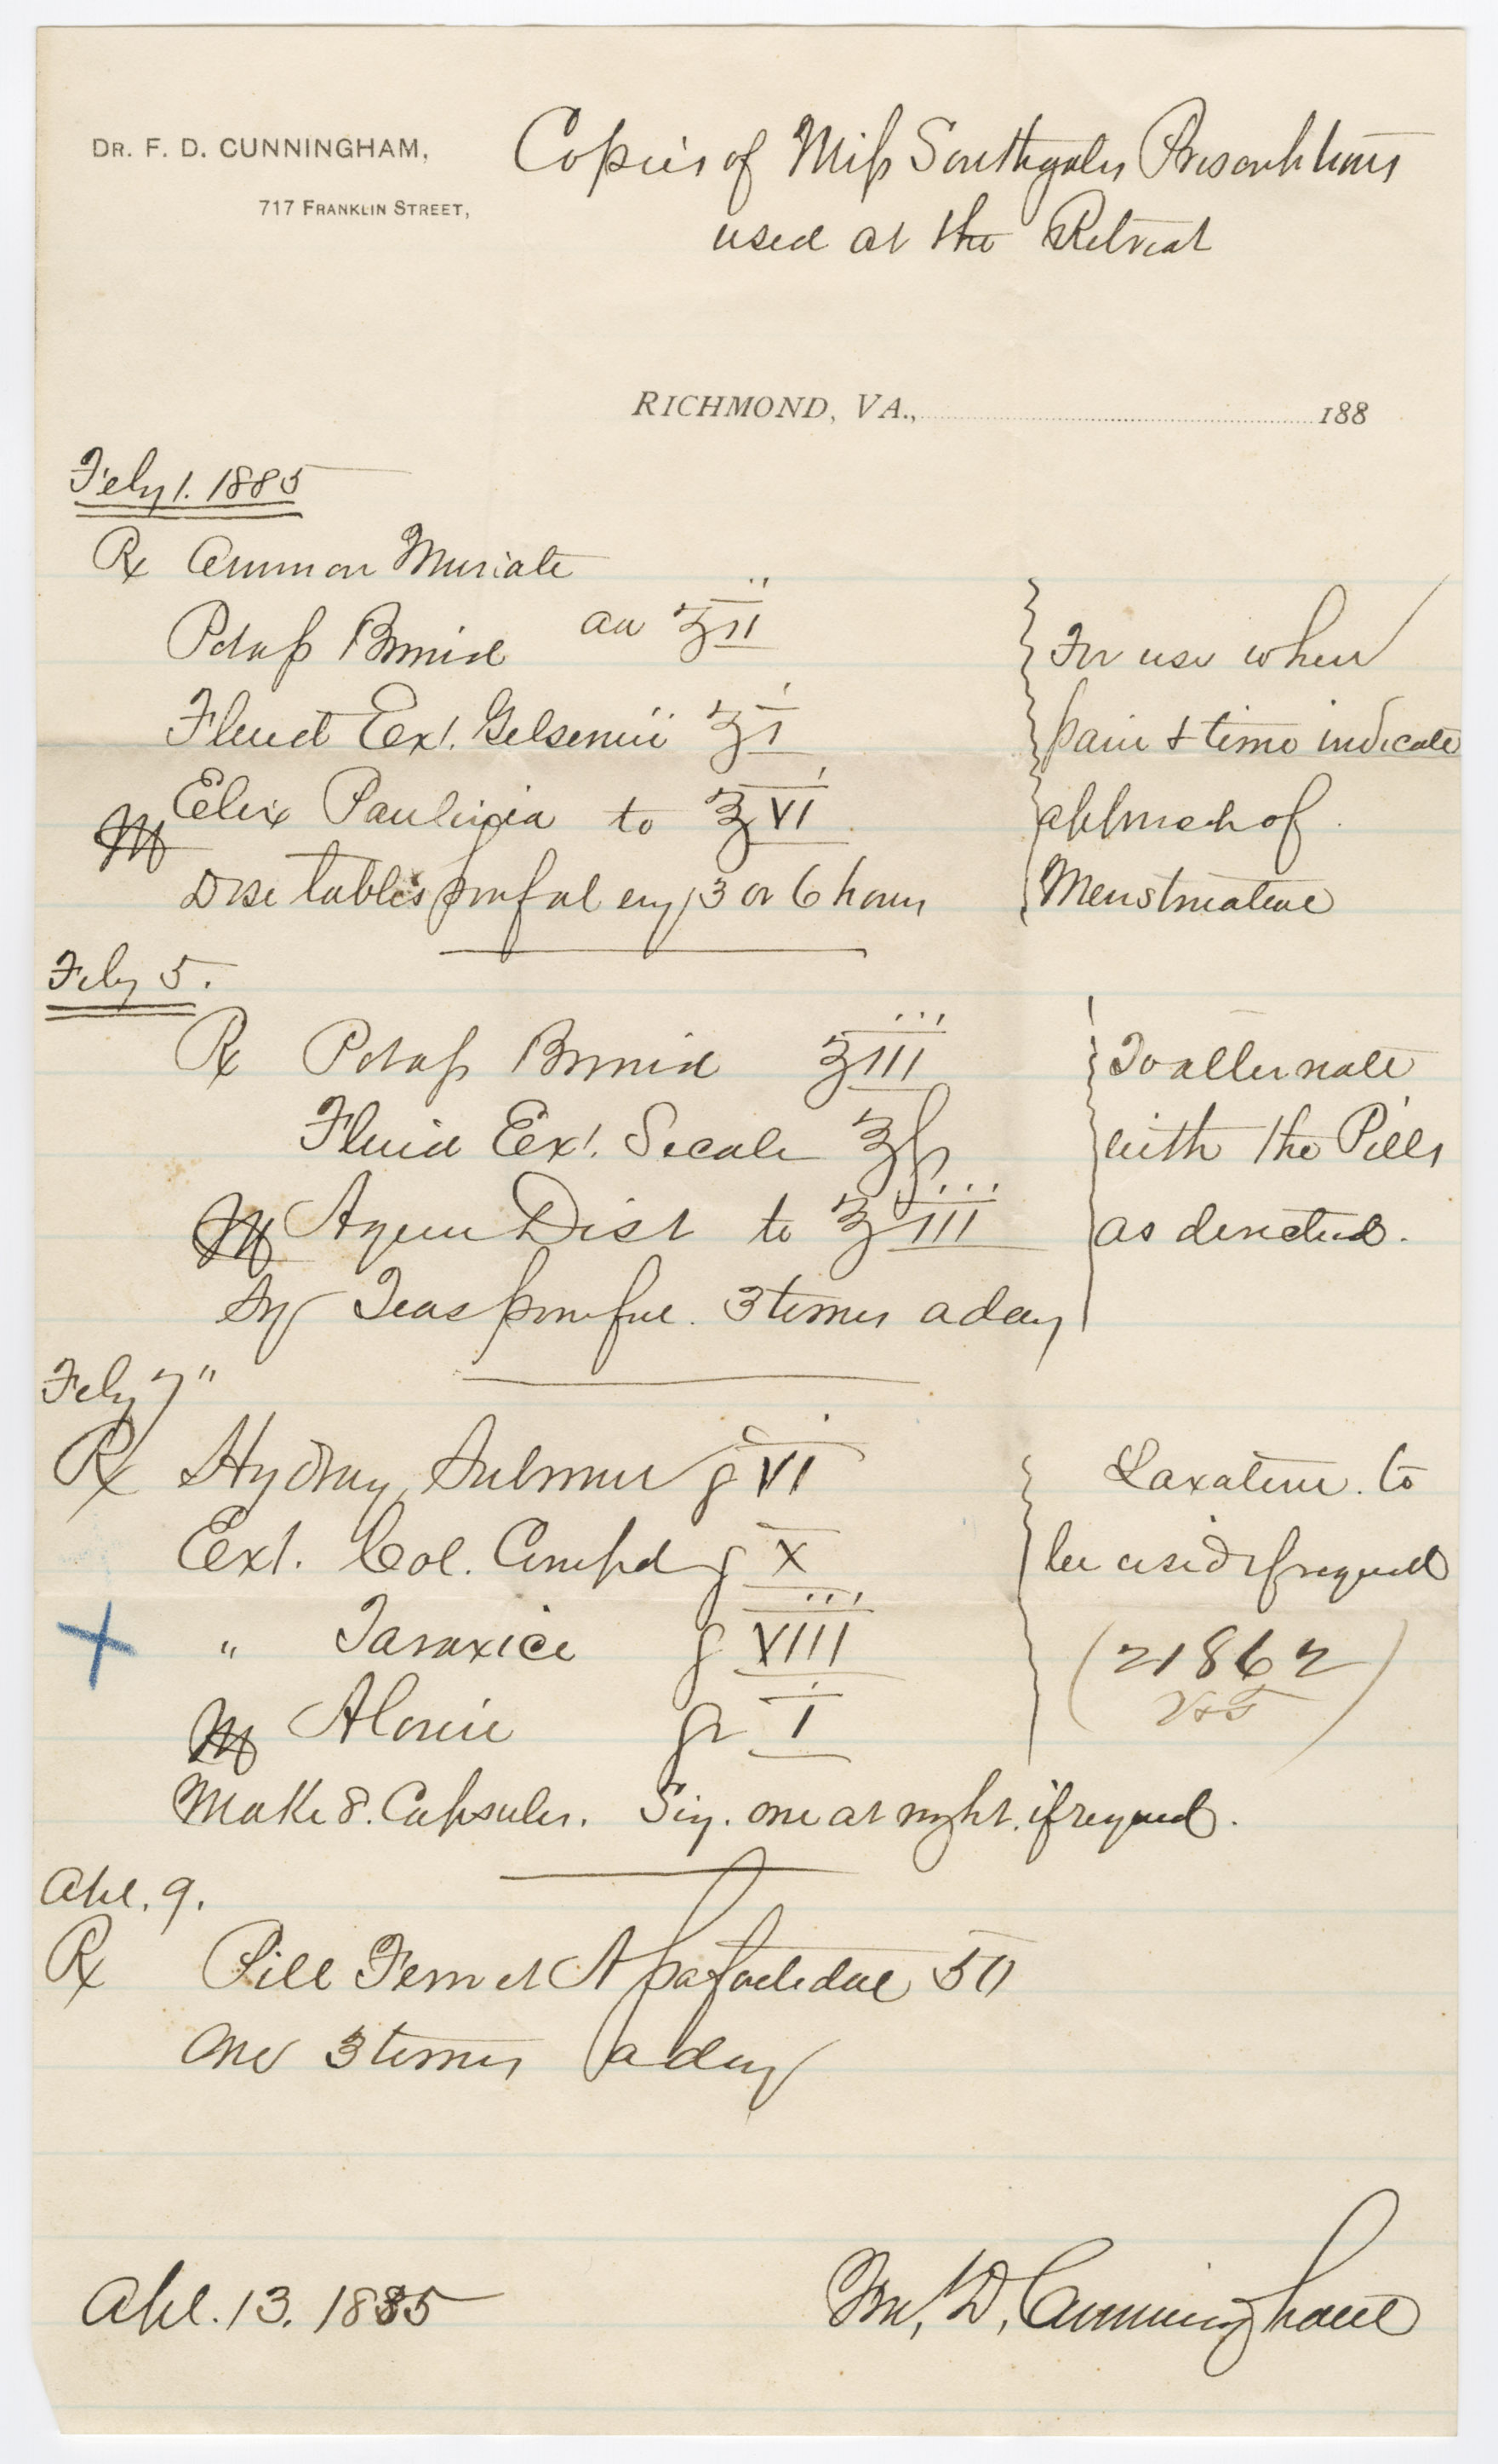 DR. F. D. CUNNINGHAM,
717 FRANKLIN STREET,
Copies of Miss Southgates Prescriptions
used at the Retreat
RICHMOND, VA., 188
Feby 1. 1885
Rx Ammon Muriate
Potass Bromid aa ʒii
Fluid Ext. Gelsemii ʒi
Elix Paullinia to ℥VI
M
Dose tablespoonful evy 3 or 6 hours
For use when
pain & time indicate
approach of
Menstruation
Feby 5.
Rx Potass Bromid ʒiii
Fluid Ext. Secale ℥ss
M Aqua Dist to ℥iii
Sig Teaspoonful. 3 times a day
To alternate
with the Pills
as directed.
Feby 7"
Rx Hydrarg Submur g VI
Ext. Col. Compd g X
" Taraxici g VIII
M Aloin gr I
Make 8. Capsules. Sig. one at night, if requd.
Laxative. to
be used if requed
(21862
V&T)
Apl. 9.
Rx Pill Ferri et Assafoetidae 50
One 3 times a day
Apl. 13. 1885
Fra, D, Cunningham